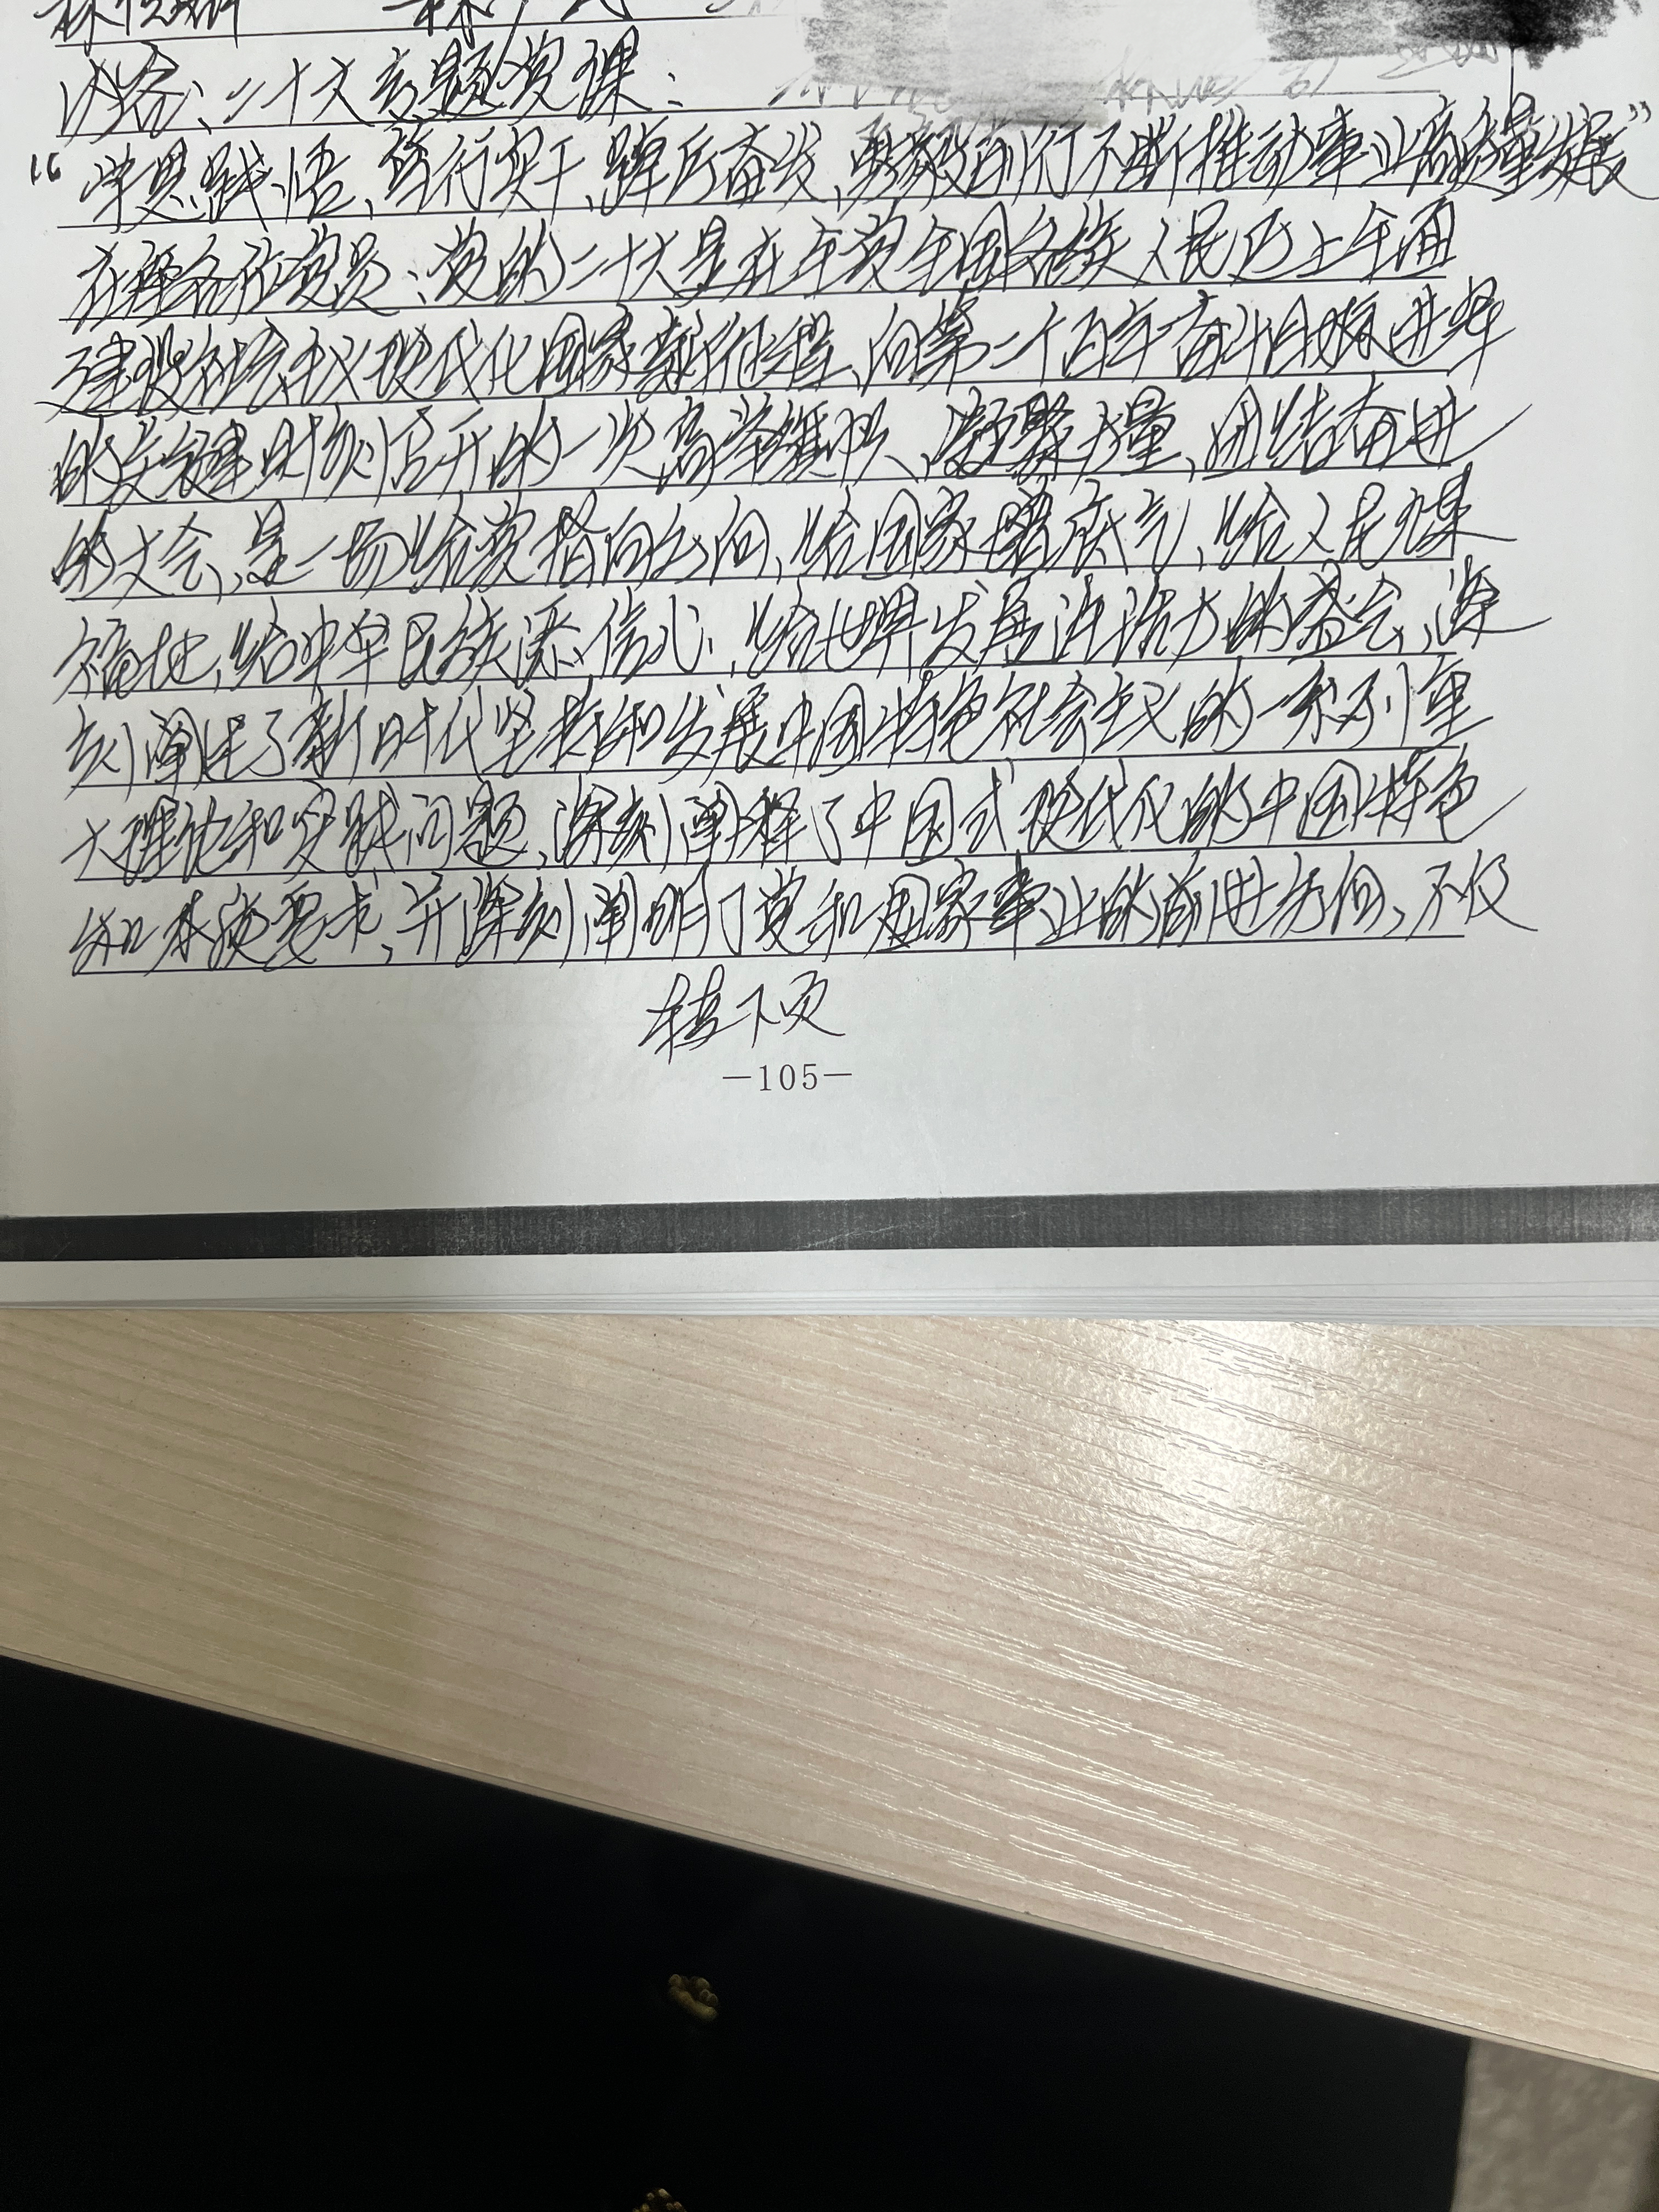 内容:二十大专题党课:
“学思践悟、笃行实干、踔厉奋发、勇毅前行不断推动事业高质量发展”
在座各位党员:党的二十大是在全党全国各族人民迈上全面
建设社会主义现代化国家新征程、向第二个百年奋斗目标进军
的关键时刻召开的一次高举旗帜、凝聚力量、团结奋进
的大会,是一场给党指向方向,给国家增底气,给人民谋
福祉,给中华民族添信心,给世界发展注活力的盛会,深
刻阐述了新时代坚持和发展中国特色社会主义的一系列重
大理论和实践问题,深刻阐释了中国式现代化的中国特色
和本质要求,并深刻阐明了党和国家事业的前进方向,不仅
转下页
—105—